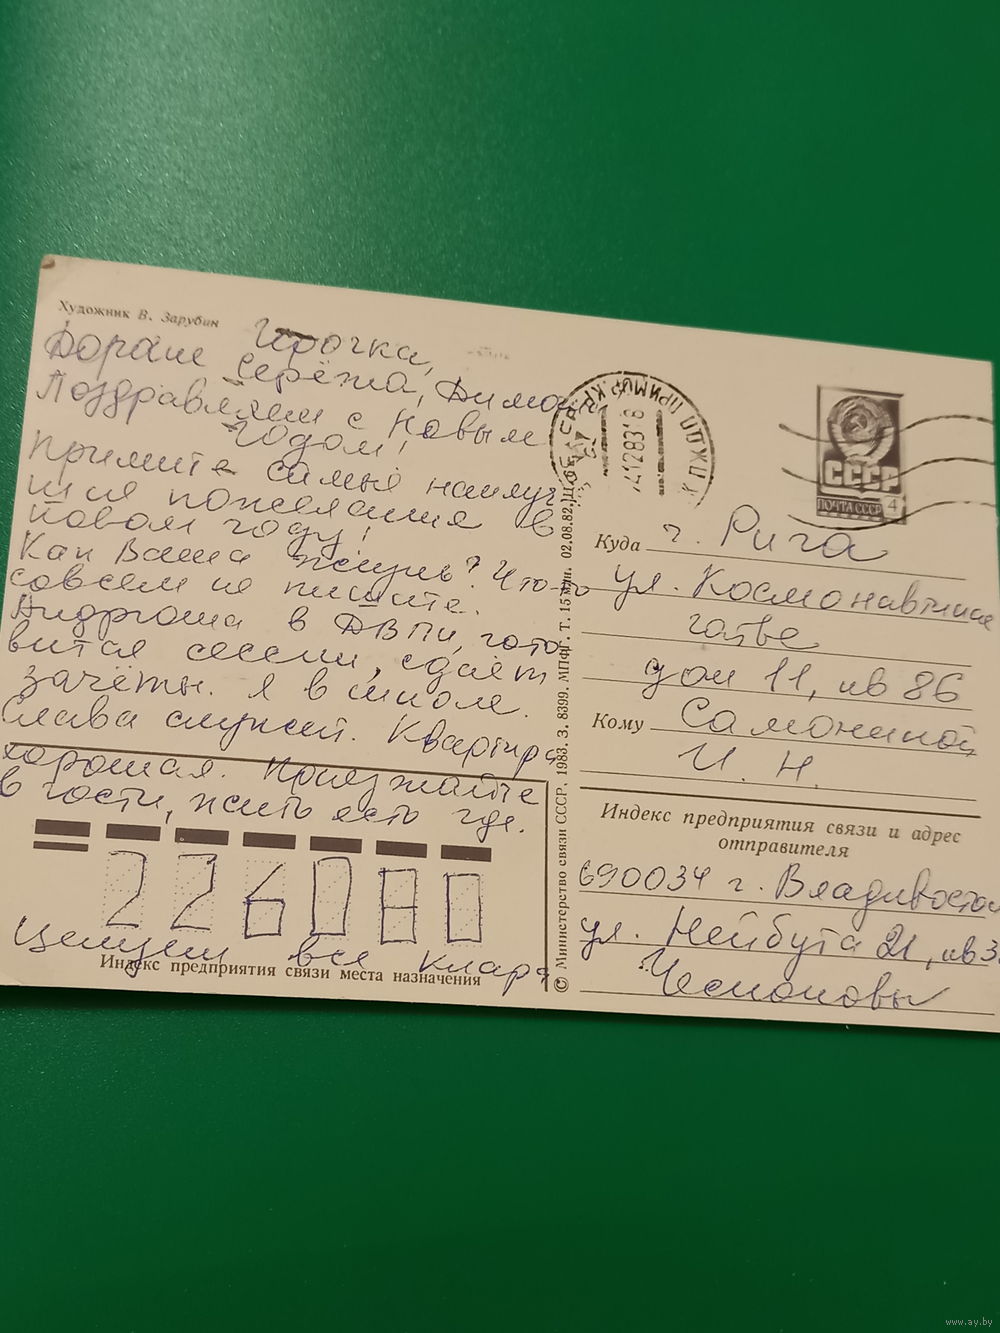 Художник В. Зарубин
Ирочка,
Дорогие Серёжа, Дима
Поздравляем с Новым
годом!
Примите самые наилуч
шие пожелания в
Новом году!
Как Ваша жизнь? Что-то
совсем не пишите.
Андрюша в ДВПИ, гото
вится сессии, сдаёт
зачёты. Я в школе.
Слава служит. Квартира
хорошая. Приезжайте
в гости, жить есть где.
226080
Целуем все Клара
Индекс предприятия связи места назначения
© Министерство связи СССР. 1983. З. 8399. МПФГ. Т. 15 млн. 02.08.82.
ПРИМОР. КР.
СССР
ПОЧТА СССР 4
Куда г. Рига
ул. Космонавтикас
гатве
дом 11, кв 86
Кому Самониной
И. Н.
Индекс предприятия связи и адрес
отправителя
690034 г. Владивосток
ул. Нейбута 21, кв 3
www.ay.by